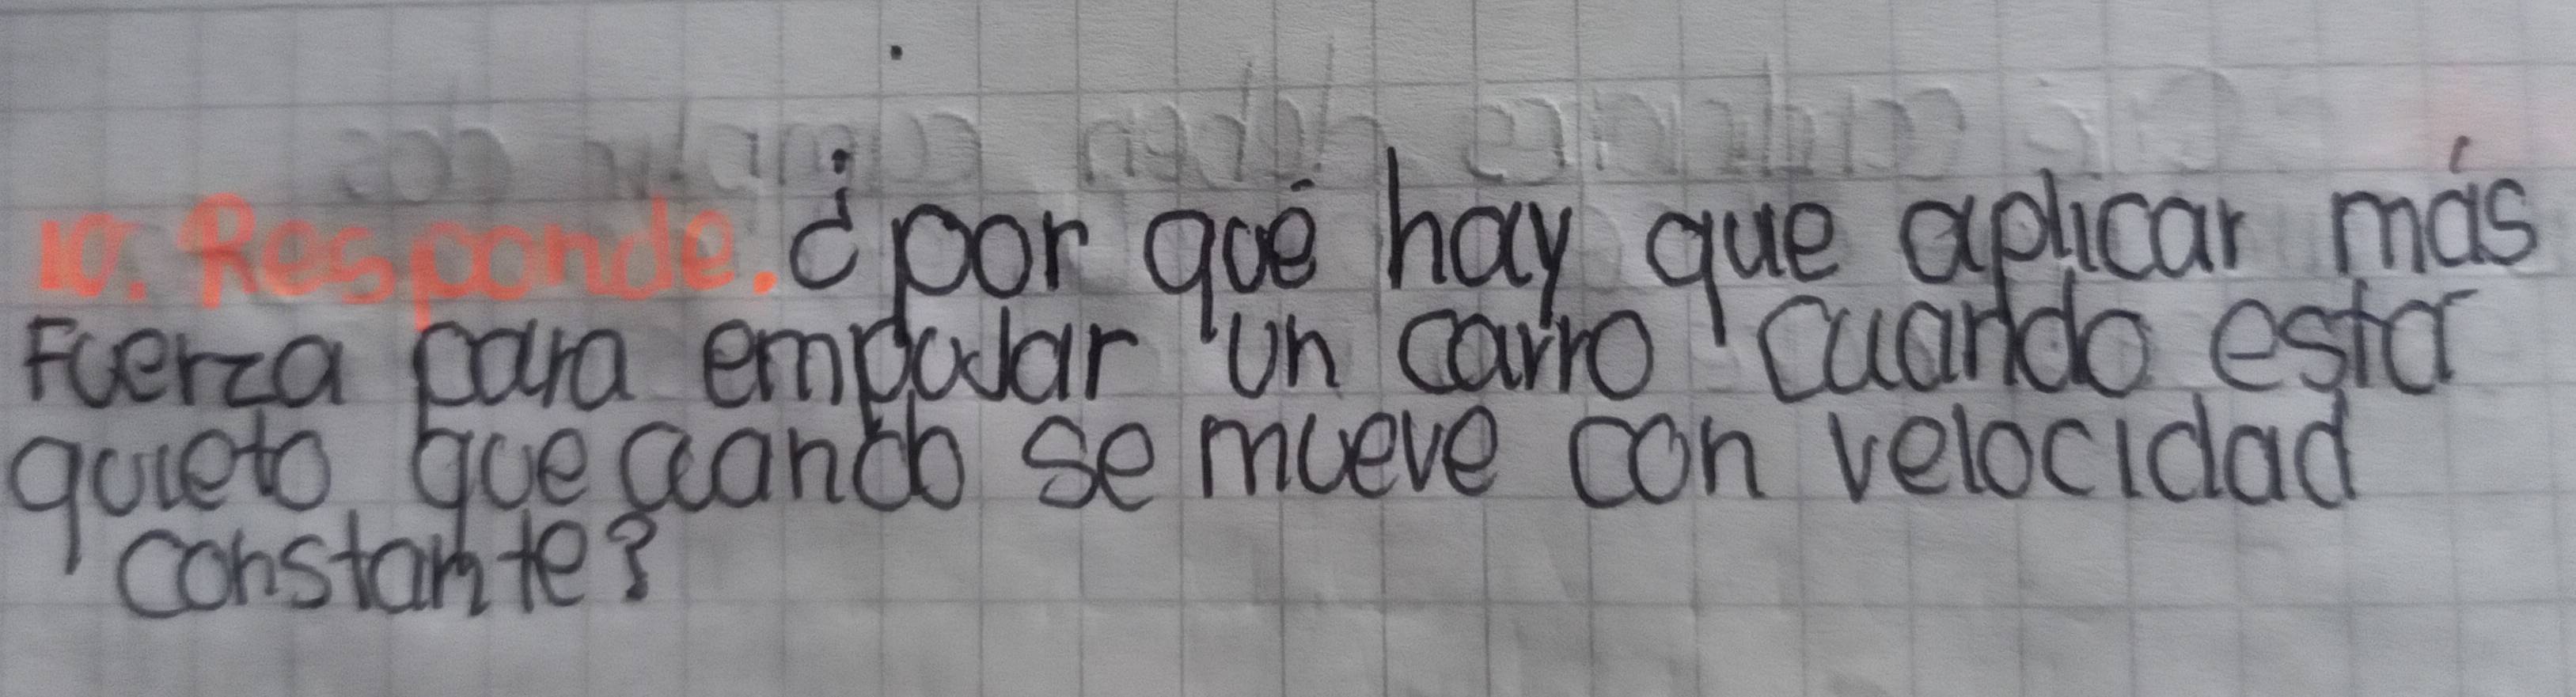 10. Responde. ¿por qué hay que aplicar más
Fuerza para empujar un carro cuando esta
quieto que cuando se mueve con velocidad
constante?